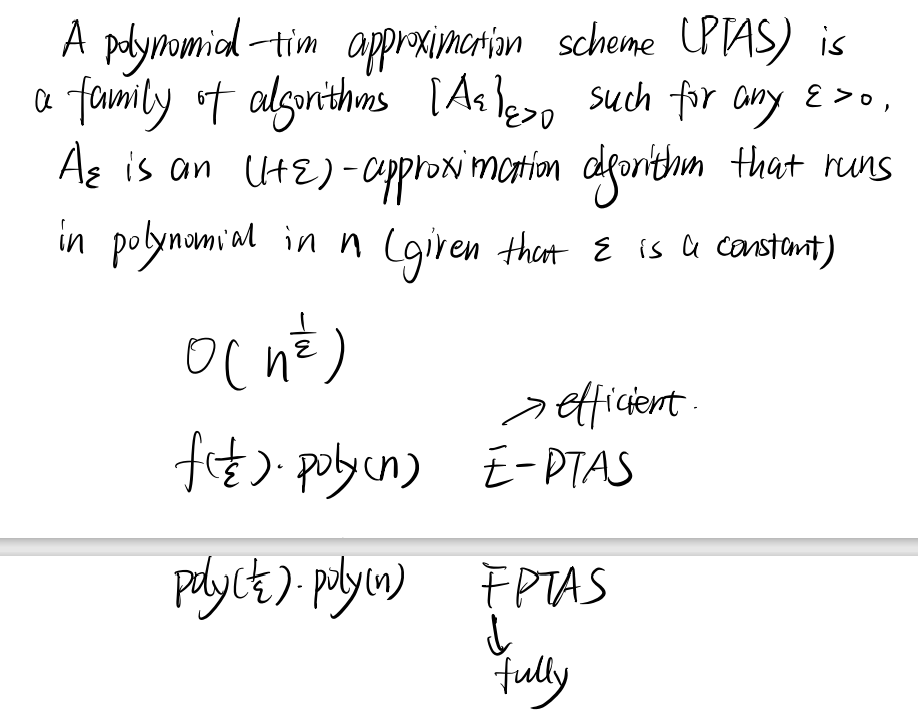 A polynomial-tim approximation scheme (PTAS) is
a family of algorithms {A_ε}_{ε>0} such for any ε>0,
A_ε is an (1+ε)-approximation algorithm that runs
in polynomial in n (given that ε is a constant)
O(n^{1/ε})
→ efficient.
f(1/ε)·poly(n) E-PTAS
poly(1/ε)·poly(n) FPTAS
↓
fully